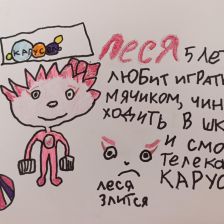 КАРУСЕЛ
ЛЕСЯ 5 ЛЕ
ЛЮБИТ ИГРАТ
МЯЧИКОМ, ЧИН
ХОДИТЬ В ШК
И СМО
ТЕЛЕКА
КАРУС
ЛЕСЯ
ЗЛИТСЯ